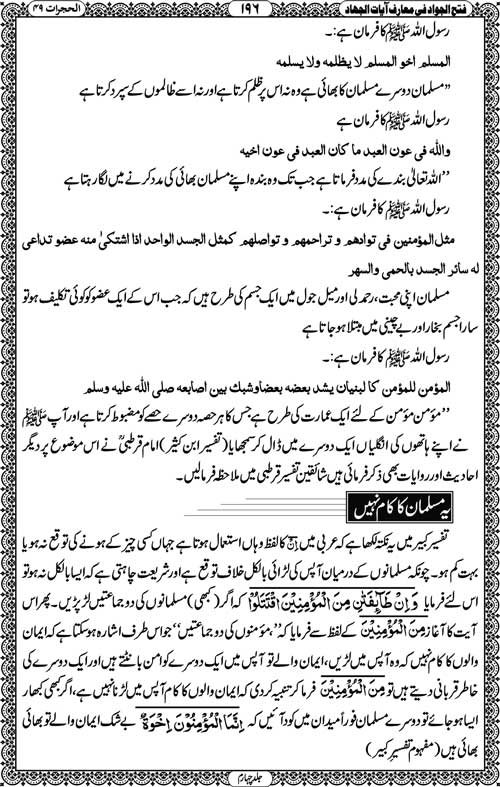 فتح الجواد فی معارف آیات الجهاد
۱۹۶
الحجرات ۴۹
رسول اللہ ﷺ کا فرمان ہے:۔
المسلم اخو المسلم لا یظلمه ولا یسلمه
”مسلمان دوسرے مسلمان کا بھائی ہے وہ نہ اس پر ظلم کرتا ہے اور نہ اسے ظالموں کے سپرد کرتا ہے
رسول اللہ ﷺ کا فرمان ہے
والله فی عون العبد ما کان العبد فی عون اخیه
”اللہ تعالیٰ بندے کی مدد فرماتا ہے جب تک وہ بندہ اپنے مسلمان بھائی کی مدد کرنے میں لگا رہتا ہے
رسول اللہ ﷺ کا فرمان ہے:۔
مثل المؤمنین فی توادهم و تراحمهم و تواصلهم کمثل الجسد الواحد اذا اشتکیٰ منه عضو تداعی
له سائر الجسد بالحمی والسهر
مسلمان اپنی محبت، رحمدلی اور میل جول میں ایک جسم کی طرح ہیں کہ جب اس کے ایک عضو کو کوئی تکلیف ہو تو
سارا جسم بخار اور بے چینی میں مبتلا ہو جاتا ہے
رسول اللہ ﷺ کا فرمان ہے:۔
المؤمن للمؤمن کا لبنیان یشد بعضه بعضا وشبك بین اصابعه صلی الله علیه وسلم
”مؤمن مؤمن کے لئے ایک عمارت کی طرح ہے جس کا ہر حصہ دوسرے حصے کو مضبوط کرتا ہے اور آپ ﷺ
نے اپنے ہاتھوں کی انگلیاں ایک دوسرے میں ڈال کر سمجھایا (تفسیر ابن کثیر) امام قرطبیؒ نے اس موضوع پر دیگر
احادیث اور روایات بھی ذکر فرمائی ہیں شائقین تفسیر قرطبی میں ملاحظہ فرمالیں۔
یہ مسلمان کا کام نہیں
تفسیر کبیر میں یہ نکتہ لکھا ہے کہ عربی میں اِنْ کا لفظ وہاں استعمال ہوتا ہے جہاں کسی چیز کے ہونے کی توقع نہ ہو یا
بہت کم ہو۔ چونکہ مسلمانوں کے درمیان آپس کی لڑائی بالکل خلاف توقع ہے اور شریعت چاہتی ہے کہ ایسا بالکل نہ ہو تو
اس لئے فرمایا وَاِنْ طَآئِفَتٰنِ مِنَ الْمُؤْمِنِیْنَ اقْتَتَلُوْا کہ اگر (کبھی) مسلمانوں کی دو جماعتیں لڑ پڑیں۔ پھر اس
آیت کا آغاز مِنَ الْمُؤْمِنِیْنَ کے لفظ سے فرمایا کہ ”مؤمنوں کی دو جماعتیں“ جو اس طرف اشارہ ہوسکتا ہے کہ ایمان
والوں کا کام نہیں کہ وہ آپس میں لڑیں، ایمان والے تو آپس میں ایک دوسرے کو امن بانٹتے ہیں اور ایک دوسرے کی
خاطر قربانی دیتے ہیں تو مِنَ الْمُؤْمِنِیْنَ فرما کر تنبیہ کر دی کہ ایمان والوں کا کام آپس میں لڑنا نہیں ہے، اگر کبھی کبھار
ایسا ہو جائے تو دوسرے مسلمان فوراً میدان میں کود آئیں کہ اِنَّمَا الْمُؤْمِنُوْنَ اِخْوَةٌ بے شک ایمان والے تو بھائی
بھائی ہیں (مفہوم تفسیر کبیر)
جلد چہارم